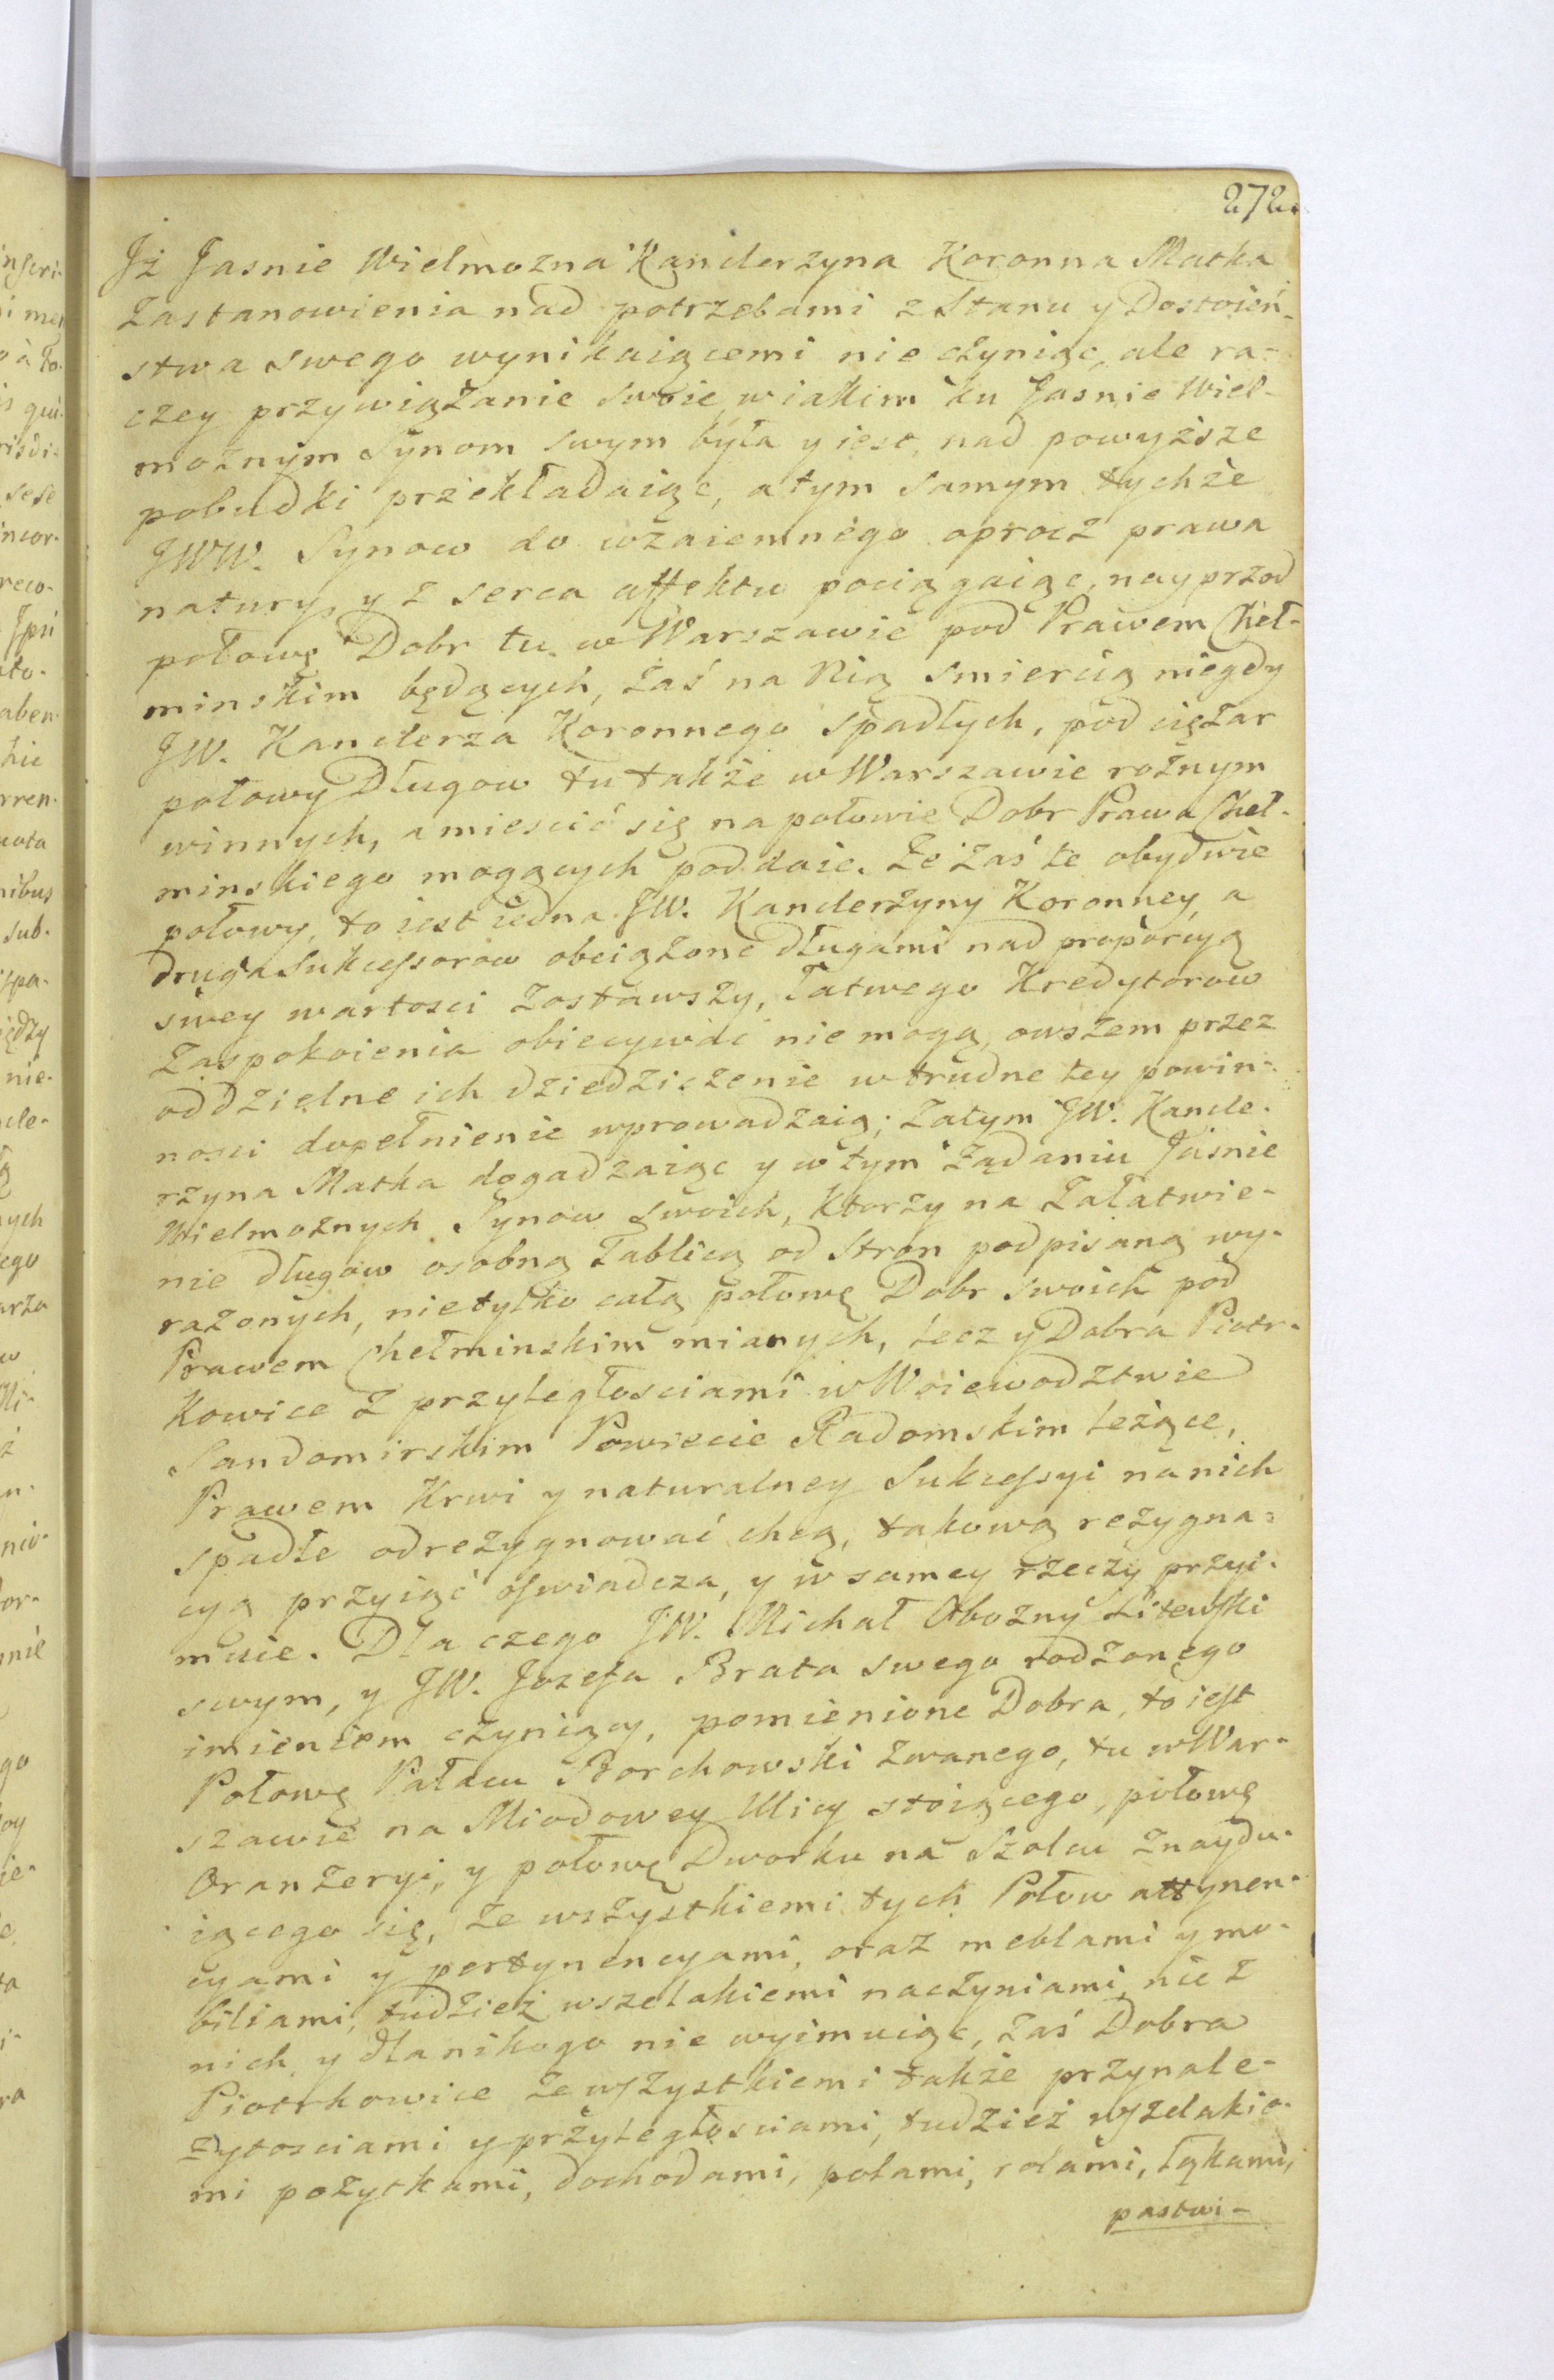 272.
Jż Jasnie Wielmozna Kanclerzyna Koronna Matka
Zastanowienia nad potrzebami z Stanu y Dostoień-
stwa swego wynikaiącemi nie czyniąc, ale ra-
czey przywiązanie swoie, w iakim ku Jasnie Wiel-
moznym Synom swym była y iest, nad powyższe
pobudki przekładaiąc, a tym samym tychże
JWW. Synow do wzaiemnego oprocz prawa
natury, y z serca affektu pociągaiąc, nayprzod
połowę Dobr tu w Warszawie pod Prawem Cheł-
minskim będących, zaś na Nią smiercią niegdy
JW. Kanclerza Koronnego spadłych, pod ciężar
połowy Długow tu także w Warszawie rożnym
winnych, a miescić się na połowie Dobr Prawa Cheł-
minskiego mogących poddaie. Że zaś te obydwie
połowy, to iest iedna JW. Kanclerzyny Koronney, a
druga Sukcessorow obciążone długami nad proporcyą
swey wartosci zostawszy, łatwego Kredytorow
Zaspokoienia obiecywać nie mogą, owszem przez
oddzielne ich dziedziczenie w trudne tey powin-
nosci dopełnienie wprowadzaią; Zatym JW. Kancle-
rzyna Matka dogadzaiąc y w tym żądaniu Jasnie
Wielmoznych Synow swoich, ktorzy na załatwie-
nie długow osobną Tablicą od Stron podpisaną wy-
razonych, nietylko całą połowę Dobr swoich pod
Prawem Chełminskim mianych, lecz y Dobra Piotr-
kowice z przyległosciami w Woiewodztwie
Sandomirskim Powiecie Radomskim leżące,
Prawem Krwi y naturalney Sukcessyi na nich
spadłe odrezygnować chcą, takową rezygna-
cyą przyiąć oswiadcza, y w samey rzeczy przyi-
muie. Dla czego JW. Michał Obozny Litewski
swym, y JW. Jozefa Brata swego rodzonego
imieniem czyniący, pomienione Dobra, to iest
Połowę Pałacu Borchowski zwanego, tu w War-
szawie na Miodowey Ulicy stoiącego, połowę
Oranzeryi, y połowę Dworku na Szolcu znaydu-
iącego się, ze wszystkiemi tych Połow attynen-
cyami y pertynencyami, oraz meblami y mo-
biliami, tudzież wszelakiemi naczyniami nic z
nich y dla nikogo nie wyimuiąc, zaś Dobra
Piotrkowice ze wszystkiemi także przynale-
zytosciami y przyległosciami, tudzież wszelakie-
mi pożytkami, dochodami, polami, rolami, łąkami,
pastwi-